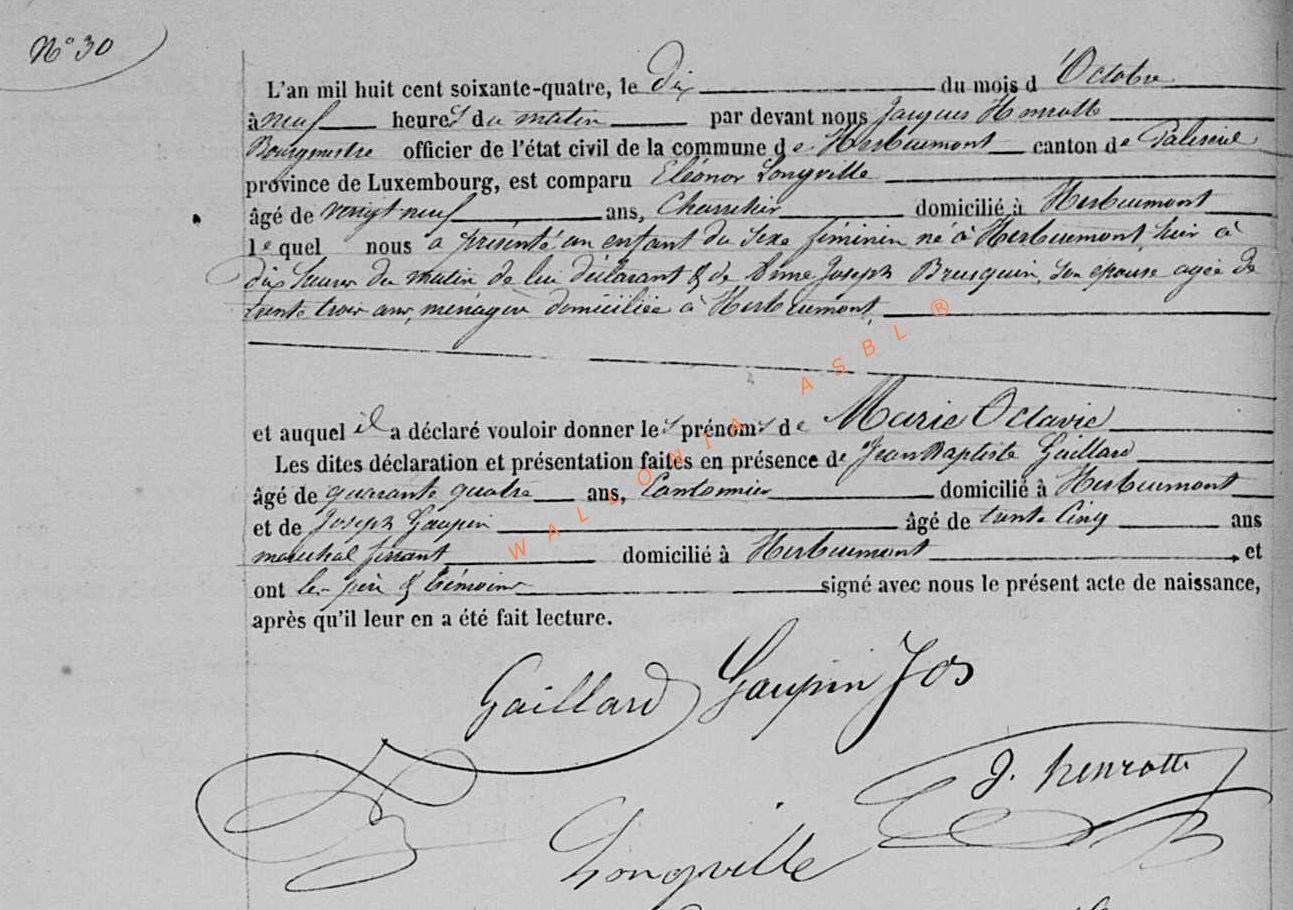 N° 30
L'an mil huit cent soixante-quatre, le Dix du mois d'Octobre
à neuf heures du matin par devant nous Jacques Henrotte
Bourgmestre officier de l'état civil de la commune de Herbeumont canton de Paliseul
province de Luxembourg, est comparu Eléonor Longville
âgé de vingt neuf ans, domicilié à Herbeumont
lequel nous a présenté un enfant du sexe féminin né à Herbeumont, hier à
dix heures du matin de lui déclarant & de Joseph Brusquin, son épouse agée de
trente trois ans, ménagère domiciliée à Herbeumont,
et auquel il a déclaré vouloir donner les prénoms de Marie Octavie
Les dites déclaration et présentation faites en présence de Jean Baptiste Gaillard
âgé de quarante quatre ans, Cantonnier domicilié à Herbeumont
et de Joseph Gaupin âgé de trente Cinq ans
maréchal ferrant domicilié à Herbeumont, et
ont les père & témoins signé avec nous le présent acte de naissance,
après qu'il leur en a été fait lecture.
Gaillard Gaupin Jos
J. henrotte
Longville
WALLONIA ASBL ®